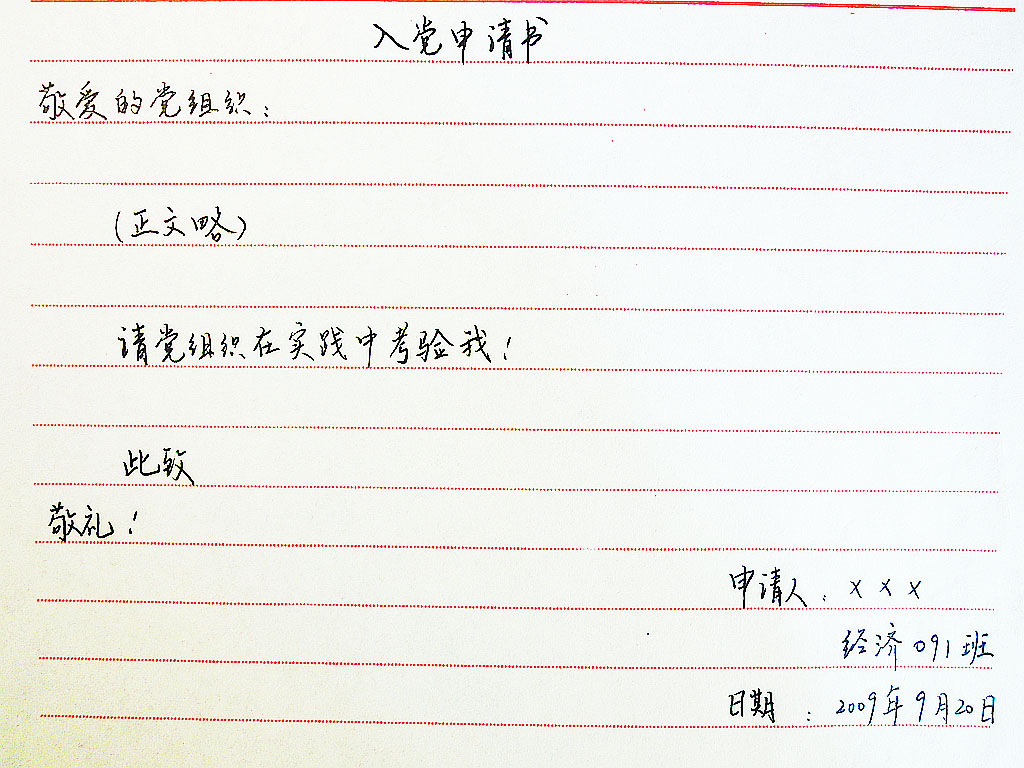 入党申请书
敬爱的党组织：
（正文略）
请党组织在实践中考验我！
此致
敬礼！
申请人：×××
经济091班
日期：2009年9月20日